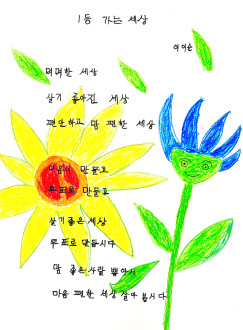 1등 가는 세상
이이순
떳떳한 세상
살기 좋아진 세상
편안하고 맘 편한 세상
만들고
투표로 만들고
살기좋은 세상
투표로 만듭시다
맘 좋은 사람 뽑아서
마음 편한 세상 살아 봅시다